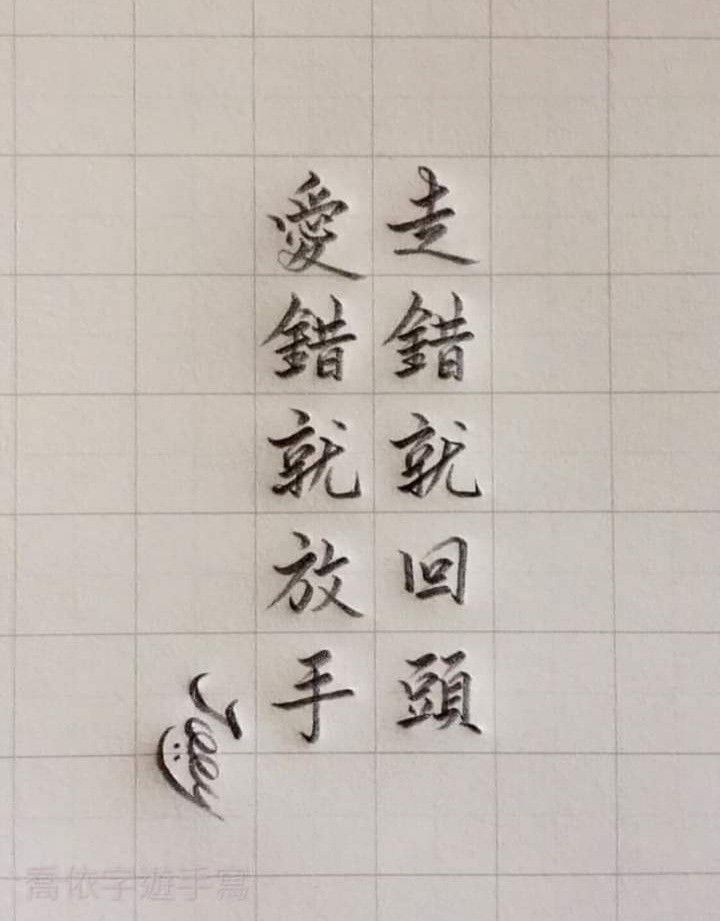 走錯就回頭
愛錯就放手
Joey
喬依字遊手寫